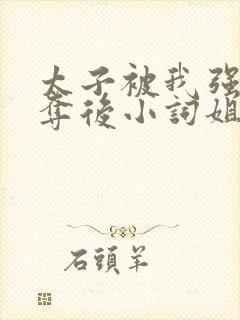 太子被我强
夺後小詞姐
石頭羊